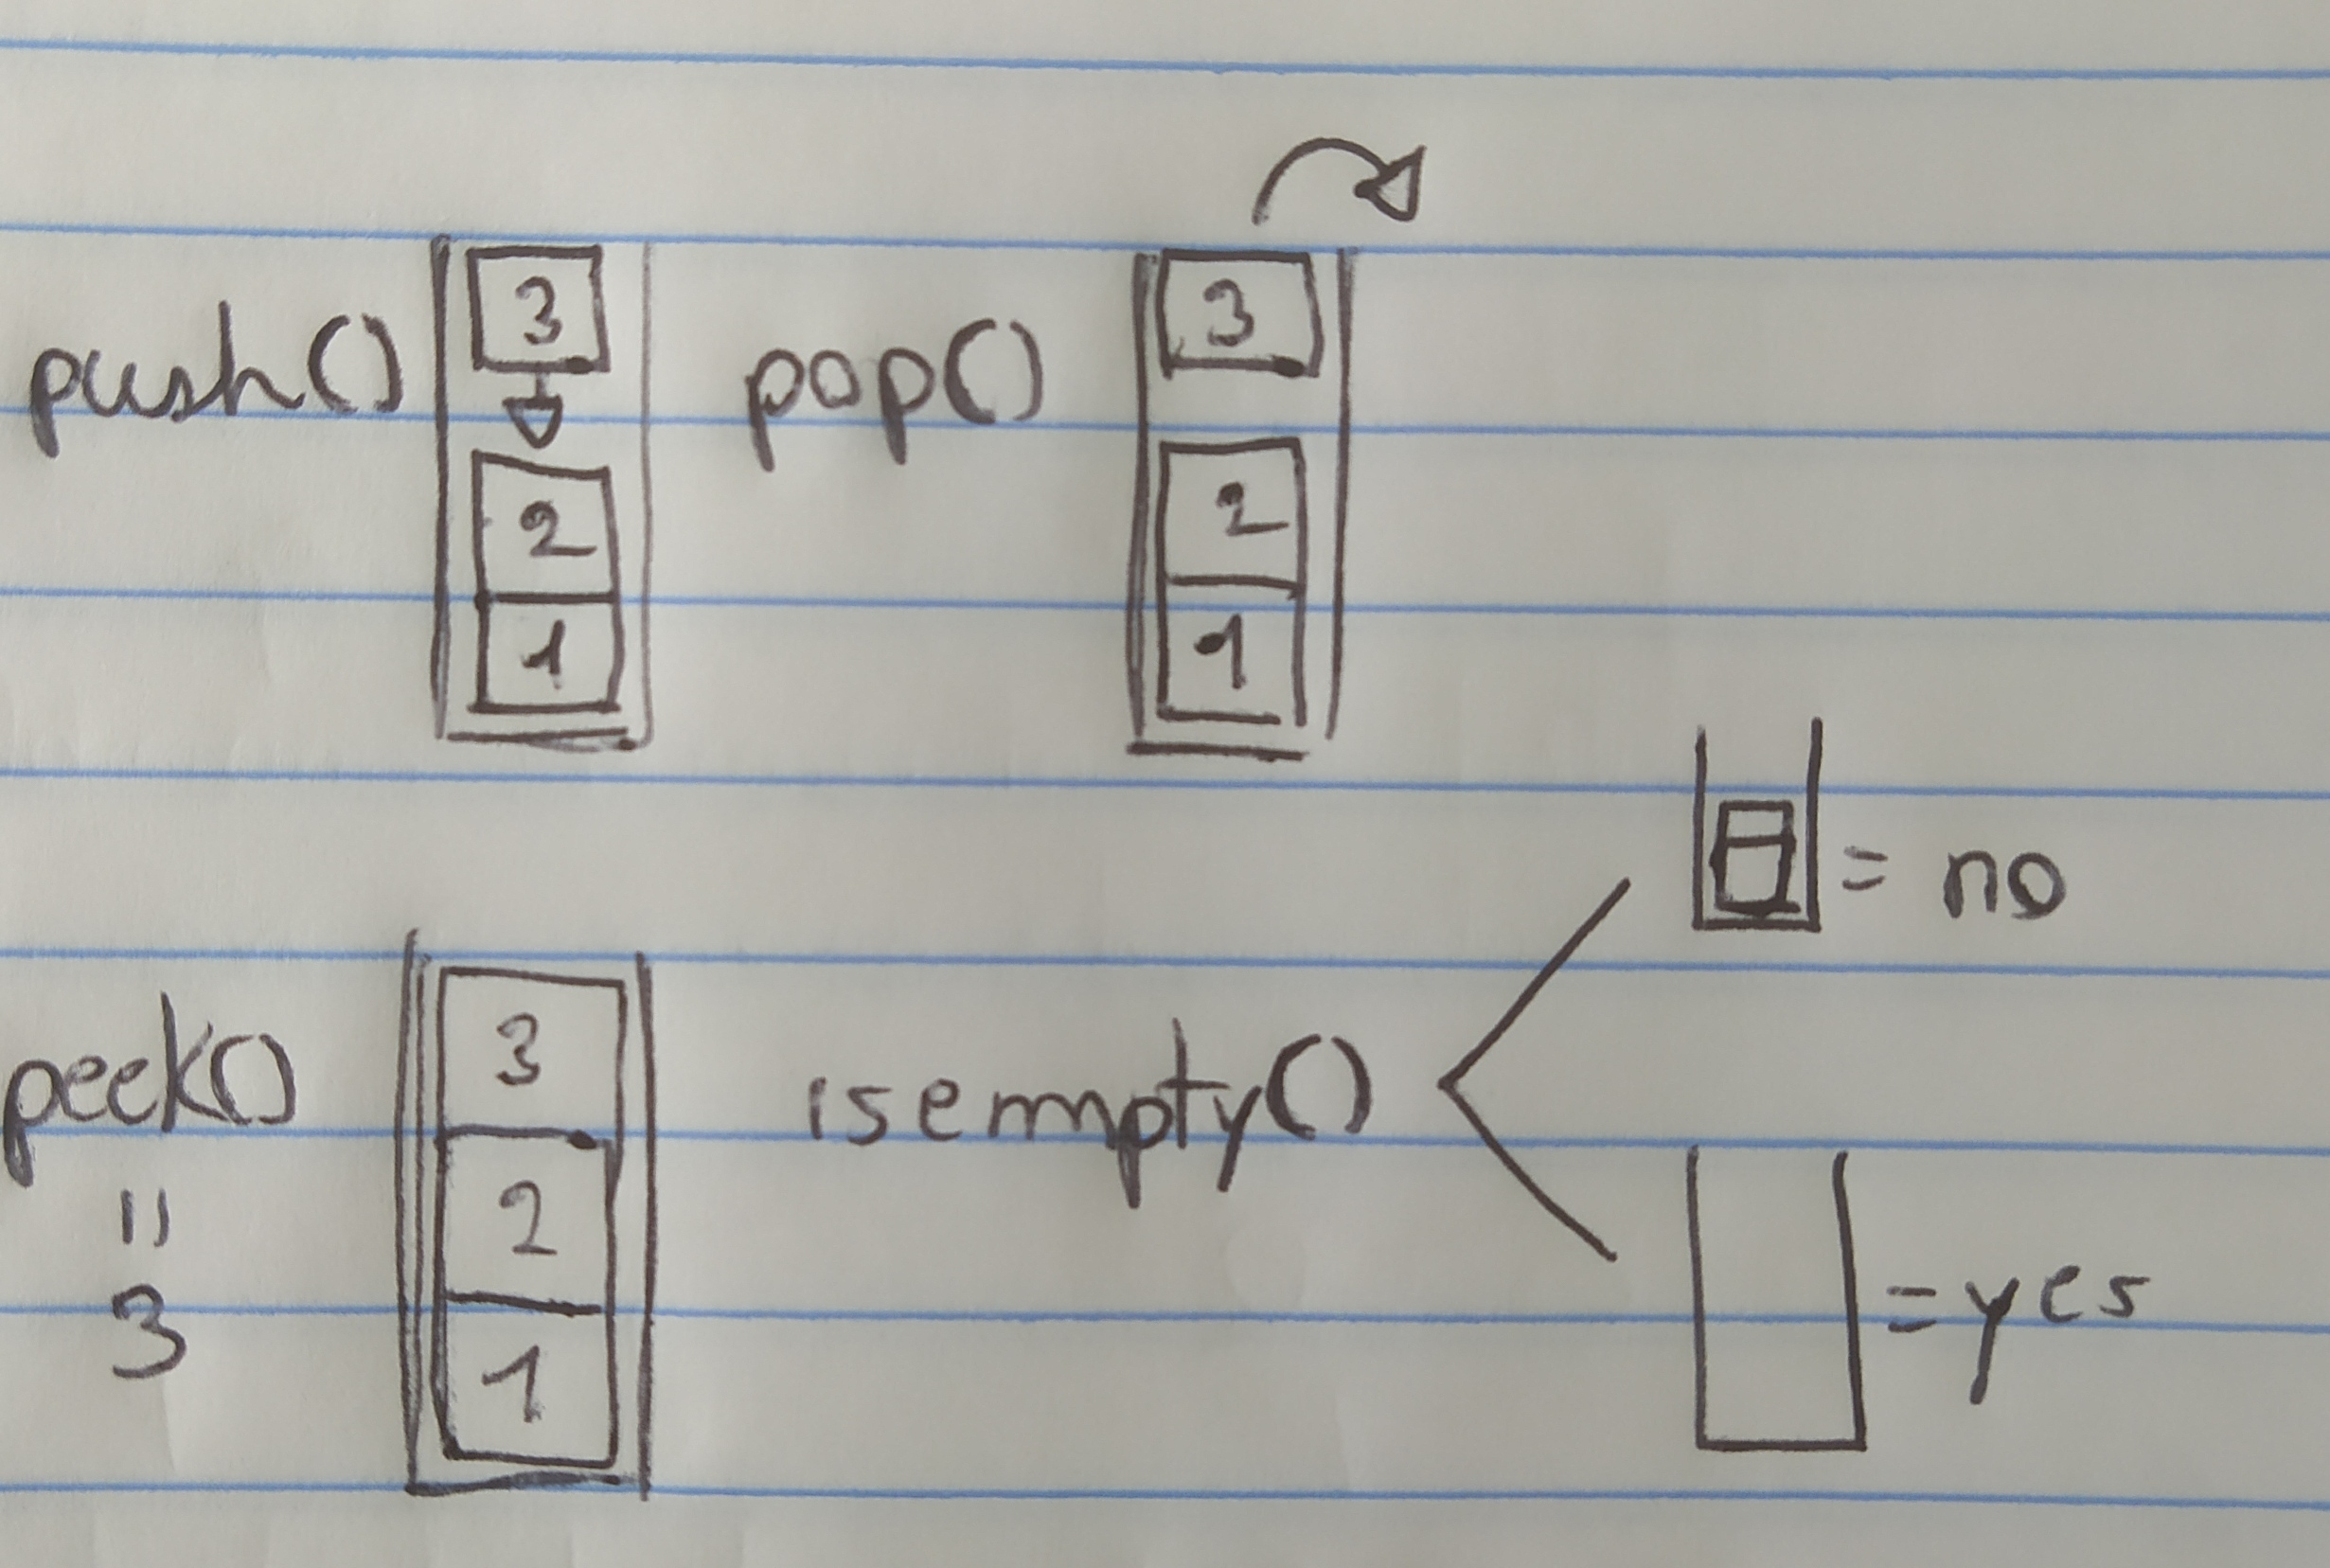 push()
3
2
1
pop()
3
2
1
peek()
=
3
3
2
1
isempty()
= no
= yes